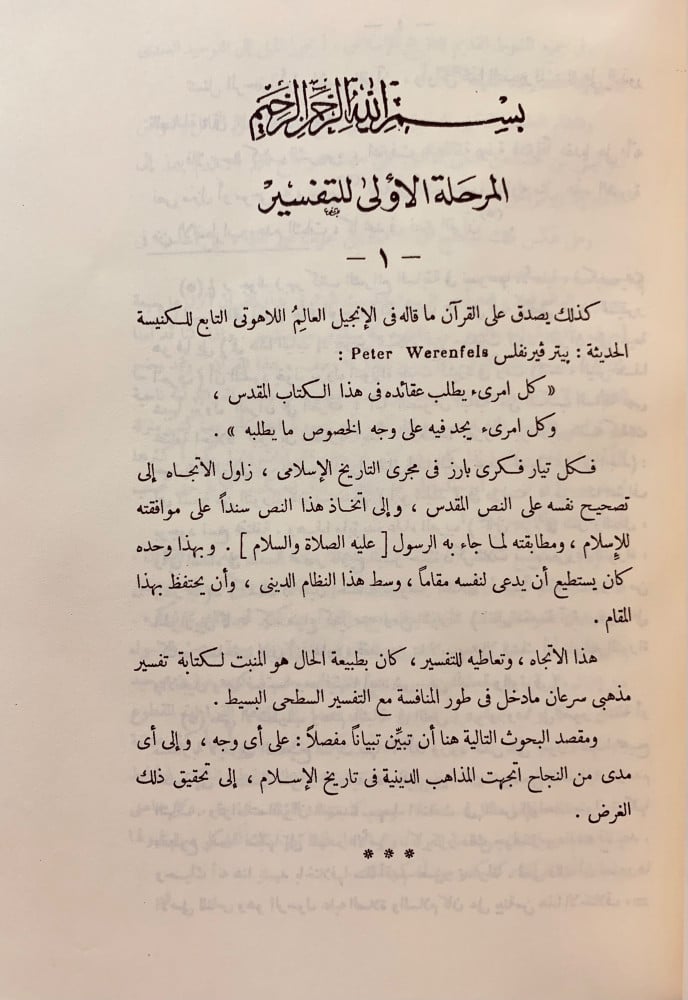 بسم الله الرحمن الرحيم
المرحلة الأولى للتفسير
— ١ —
كذلك يصدق على القرآن ما قاله فى الإنجيل العالِمُ اللاهوتى التابع للكنيسة
الحديثة : بيتر ڤيرنفلس Peter Werenfels :
« كل امرىء يطلب عقائده فى هذا الكتاب المقدس ،
وكل امرىء يجد فيه على وجه الخصوص ما يطلبه » .
فكل تيار فكرى بارز فى مجرى التاريخ الإسلامى ، زاول الاتجاه إلى
تصحيح نفسه على النص المقدس ، وإلى اتخاذ هذا النص سنداً على موافقته
للإسلام ، ومطابقته لما جاء به الرسول [ عليه الصلاة والسلام ] . وبهذا وحده
كان يستطيع أن يدعى لنفسه مقاماً ، وسط هذا النظام الدينى ، وأن يحتفظ بهذا
المقام .
هذا الاتجاه ، وتعاطيه للتفسير ، كان بطبيعة الحال هو المنبت لكتابة تفسير
مذهبى سرعان مادخل فى طور المنافسة مع التفسير السطحى البسيط .
ومقصد البحوث التالية هنا أن تبيِّن تبياناً مفصلاً : على أى وجه ، وإلى أى
مدى من النجاح اتجهت المذاهب الدينية فى تاريخ الإسلام ، إلى تحقيق ذلك
الغرض .
* * *